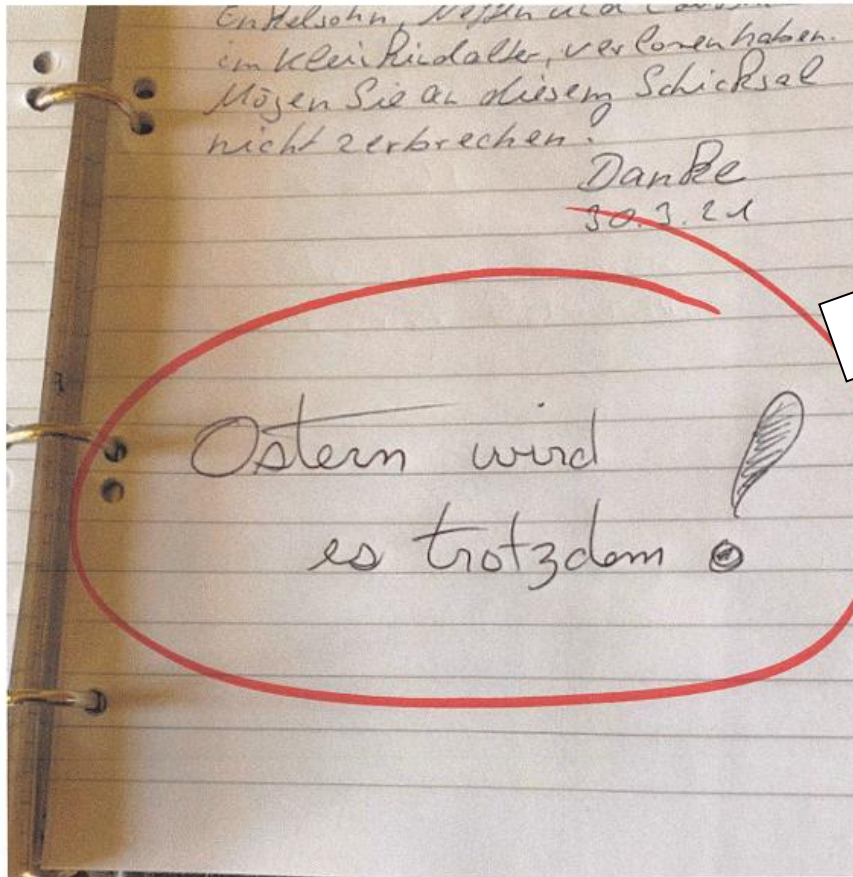 Enkelsohn, Neffen und
im Kleinkindalter, verloren haben.
Mögen Sie an diesem Schicksal
nicht zerbrechen!
Danke
30.3.21
Ostern wird
es trotzdem!